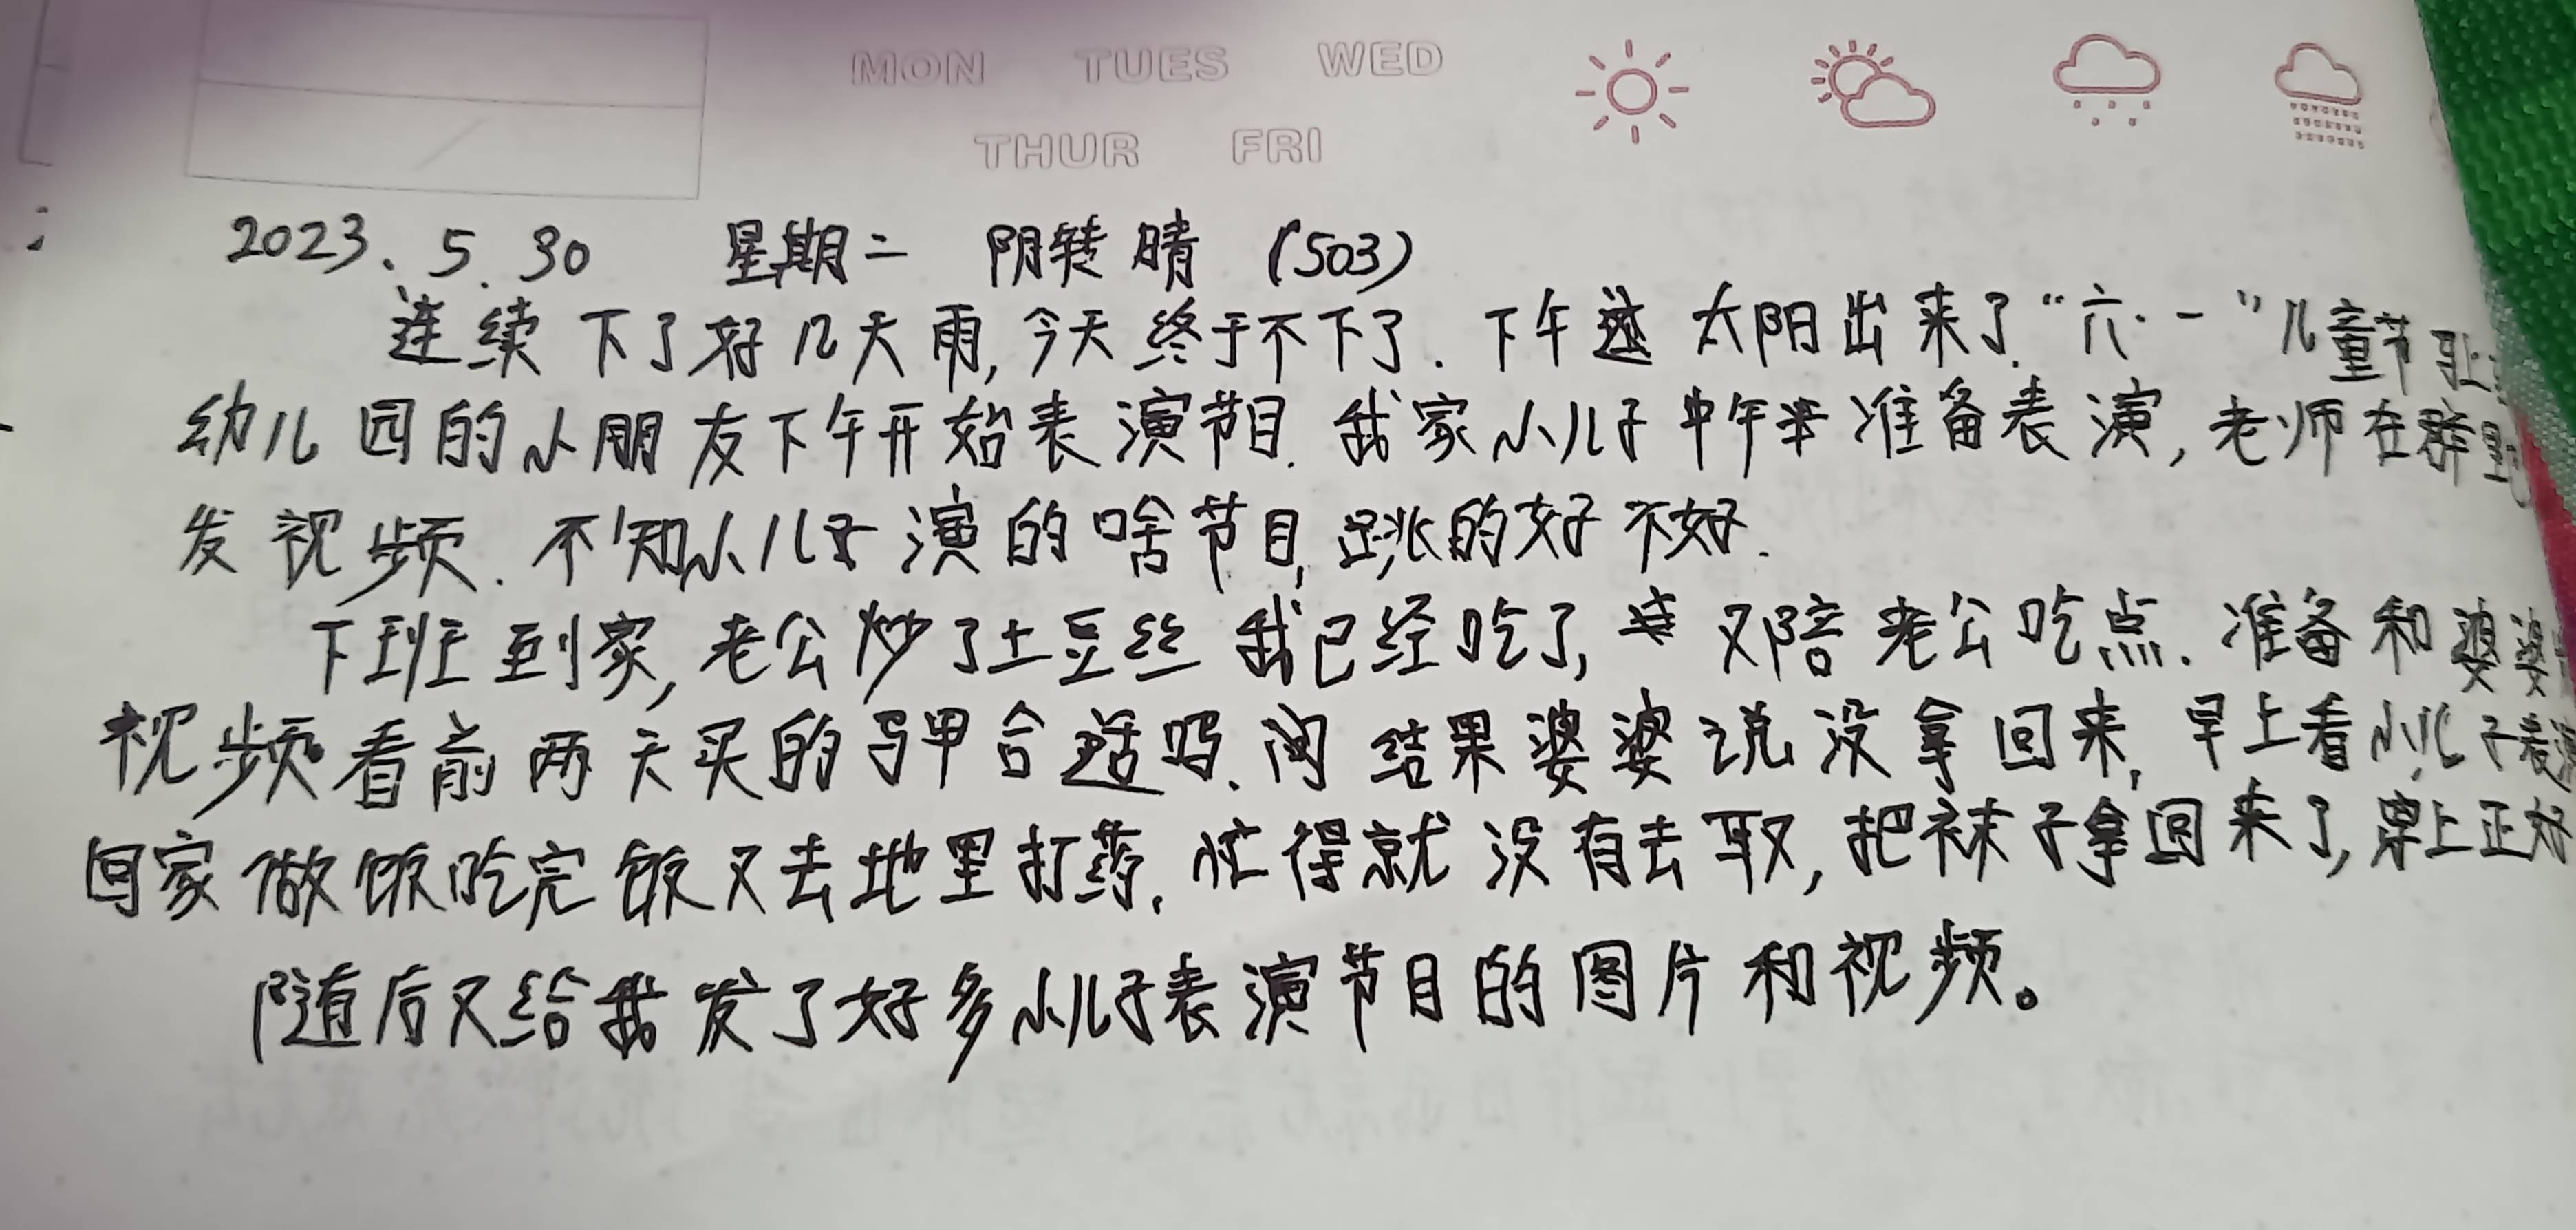 MON TUES WED
THUR FRI
2023、5.30 星期二 阴转晴 (503)
连续下了好几天雨,今天终于不下了.下午 太阳出来了.“六·一”儿童节
幼儿园的小朋友下午开始表演节目.我家小儿子中午 准备表演,老师在群里
发视频.不知小儿子演的啥节目,跳的好不好.
下班到家,老公炒了土豆丝 我已经吃了, 又陪老公吃点.准备和婆婆
视频看前两天买的马甲合适吗. 结果婆婆说没拿回来,早上看小儿子表演
回家做饭吃完饭又去地里打药,忙得就没有去取,把袜子拿回来了,穿上正好
随后又给我发了好多小儿子表演节目的图片和视频。